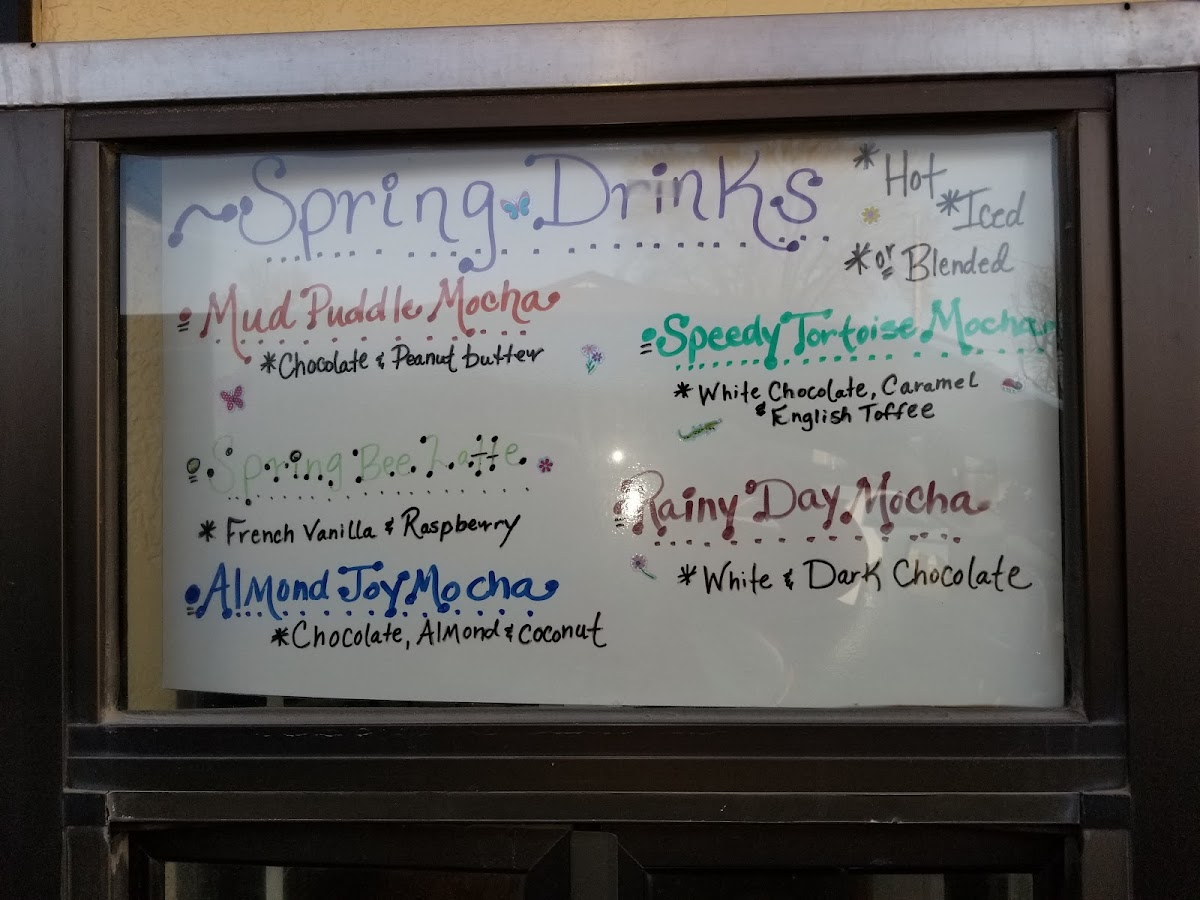 Spring Drinks
*Hot
*Iced
*or Blended
Mud Puddle Mocha
*Chocolate & Peanut butter
Spring Bee Latte
* French Vanilla & Raspberry
Almond Joy Mocha
*Chocolate, Almond & Coconut
Speedy Tortoise Mocha
*White Chocolate, Caramel
& English Toffee
Rainy Day Mocha
*White & Dark Chocolate